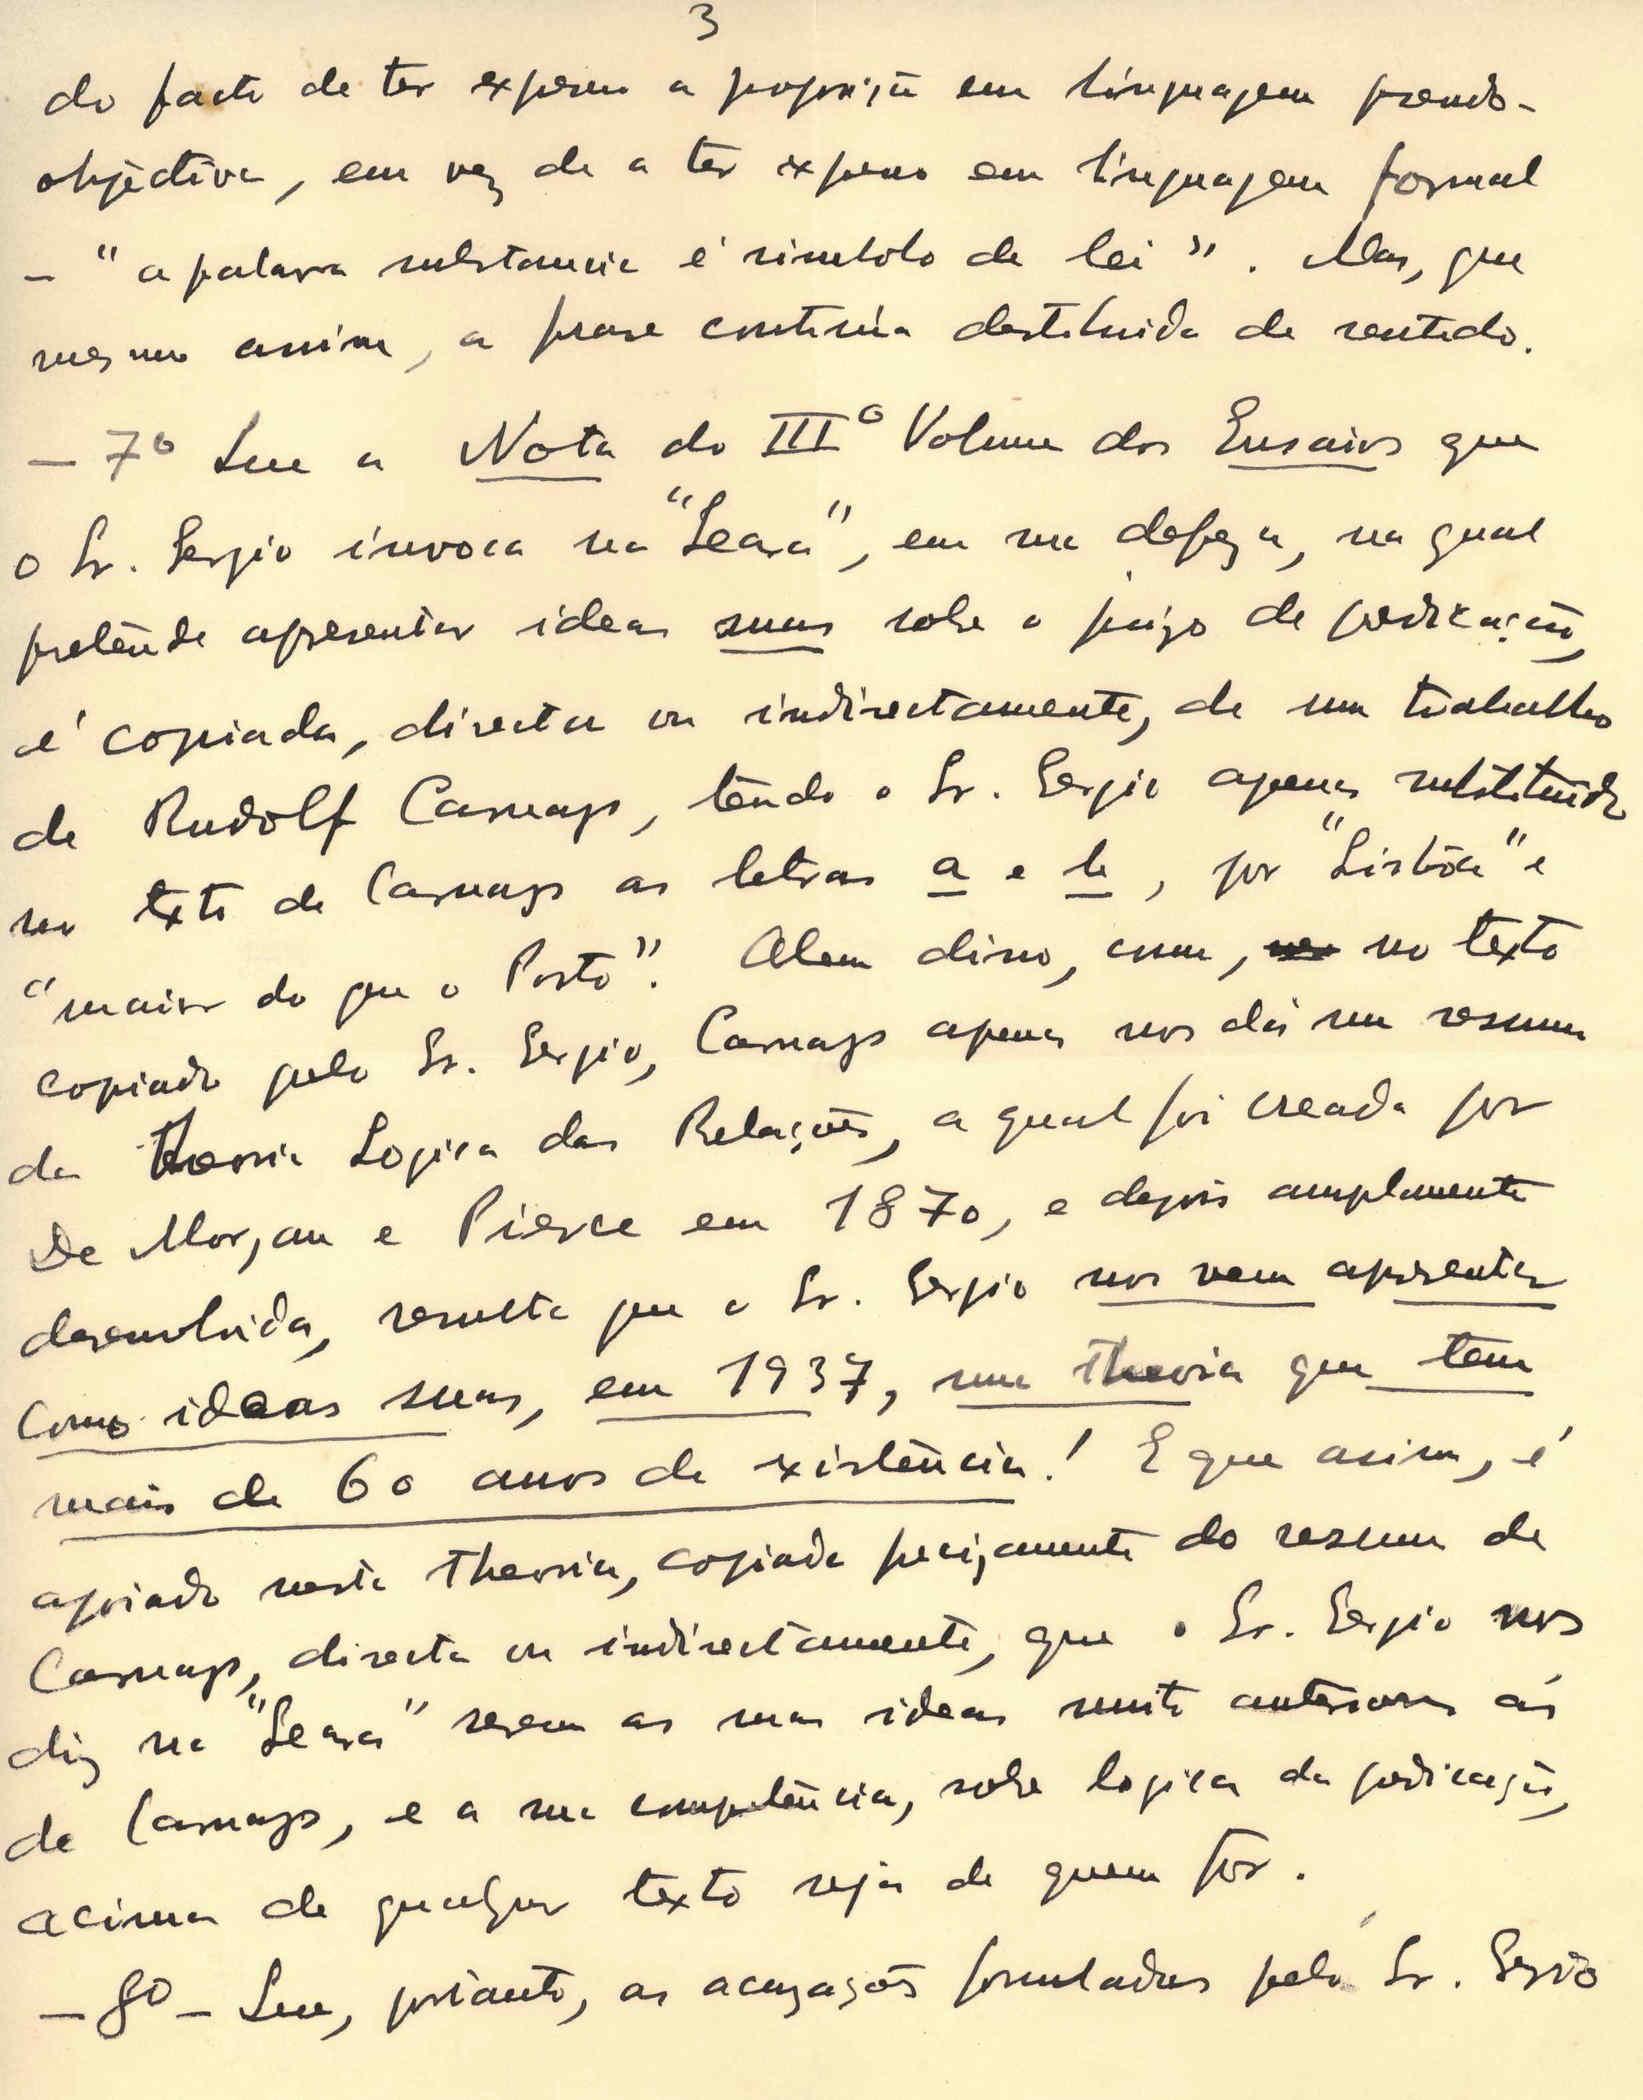 3
do facto de ter exposto a proposição em linguagem pseudo-
objectiva, em vez de a ter exposto em linguagem formal
– "a palavra substancia é simbolo de lei". Mas, que
mesmo assim, a frase continúa destituida de sentido.
– 7º Que a Nota do IIIº Volume dos Ensaios que
o Sr. Sergio invoca na "Seara", em sua defeza, na qual
pretende apresentar ideas suas sobre o juizo de predicação,
é copiada, directa ou indirectamente, de um trabalho
de Rudolf Carnap, tendo o Sr. Sergio apenas substituido
no texto de Carnap as letras a e b, por "Lisbôa" e
"maior do que o Porto". Alem disso, como, no texto
copiado pelo Sr. Sergio, Carnap apenas nos dá um resumo
da Theoria Logica das Relações, a qual foi creada por
De Morgan e Pierce em 1870, e depois amplamente
desenvolvida, resulta que o Sr. Sergio nos vem apresentar
como ideas suas, em 1937, uma theoria que tem
mais de 60 anos de existência! E que assim, é
apoiado nesta theoria, copiada precizamente do resumo de
Carnap, directa ou indirectamente, que o Sr. Sergio nos
diz na "Seara" serem as suas ideas muito anteriores ás
de Carnap, e a sua competência, sobre logica da predicação,
acima de qualquer texto seja de quem fôr.
– 8º – Que, portanto, as acuzações formuladas pelo Sr. Sergio